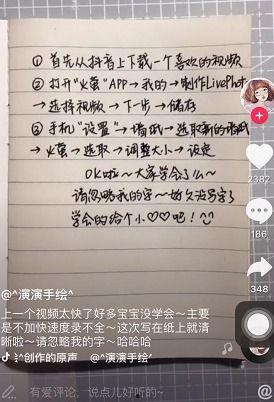 ① 首先从抖音上下载一个喜欢的视频
② 打开"火萤"APP→我的→制作LivePhoto
→选择视频→下一步→储存
③ 手机"设置"→墙纸→选取新的墙纸
→火萤→选取→调整大小→设定
OK啦~大家学会了么~
请忽略我的字~好久没写字了
学会的给个小♡♡吧!
2382
186
348
@^演演手绘^
上一个视频太快了好多宝宝没学会~主要
是不加快速度录不全~这次写在纸上就清
晰啦~请忽略我的字~哈哈哈
^创作的原声 @^演演手绘^
有爱评论，说点儿好听的~
@